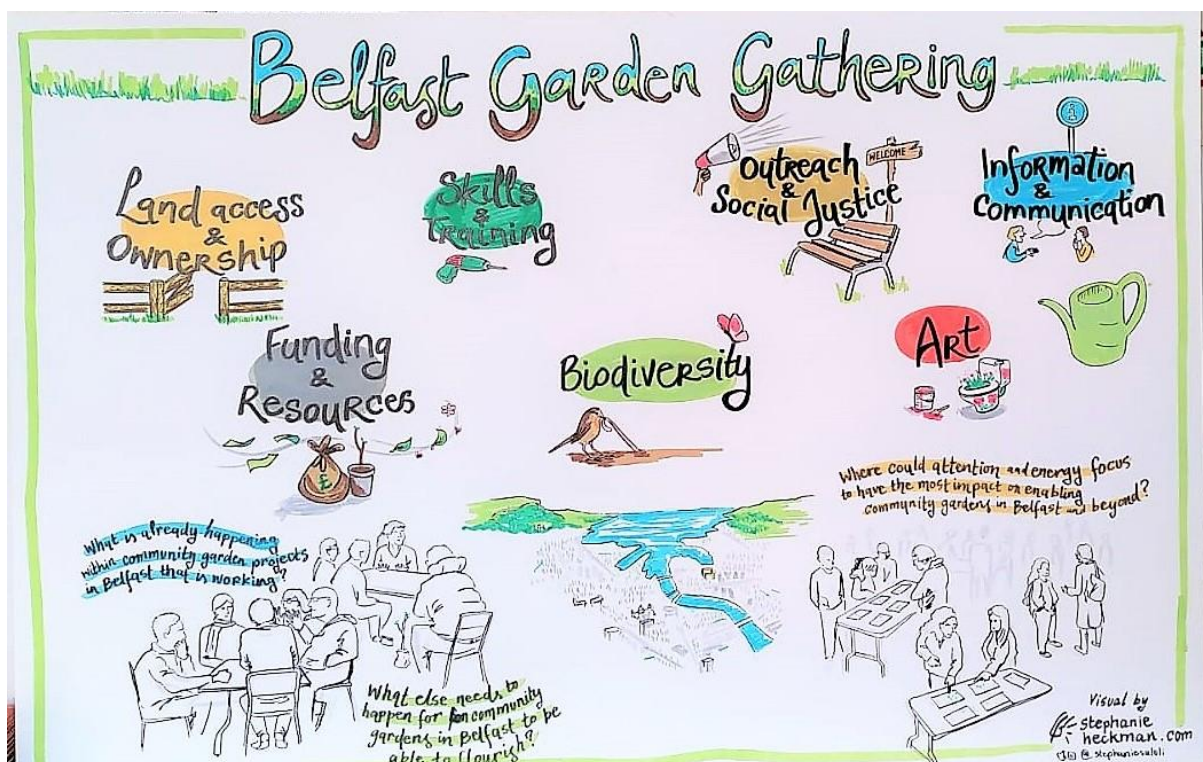 Belfast Garden Gathering
Land access
&
Ownership
Skills
&
Training
Outreach
&
Social Justice
WELCOME
i
Information
&
Communication
Funding
&
Resources
£
Biodiversity
Art
What is already happening
within community garden projects
in Belfast that is working?
What else needs to
happen for community
gardens in Belfast to be
able to flourish?
Where could attention and energy focus
to have the most impact on enabling
community gardens in Belfast and beyond?
Visual by
stephanie
heckman.com